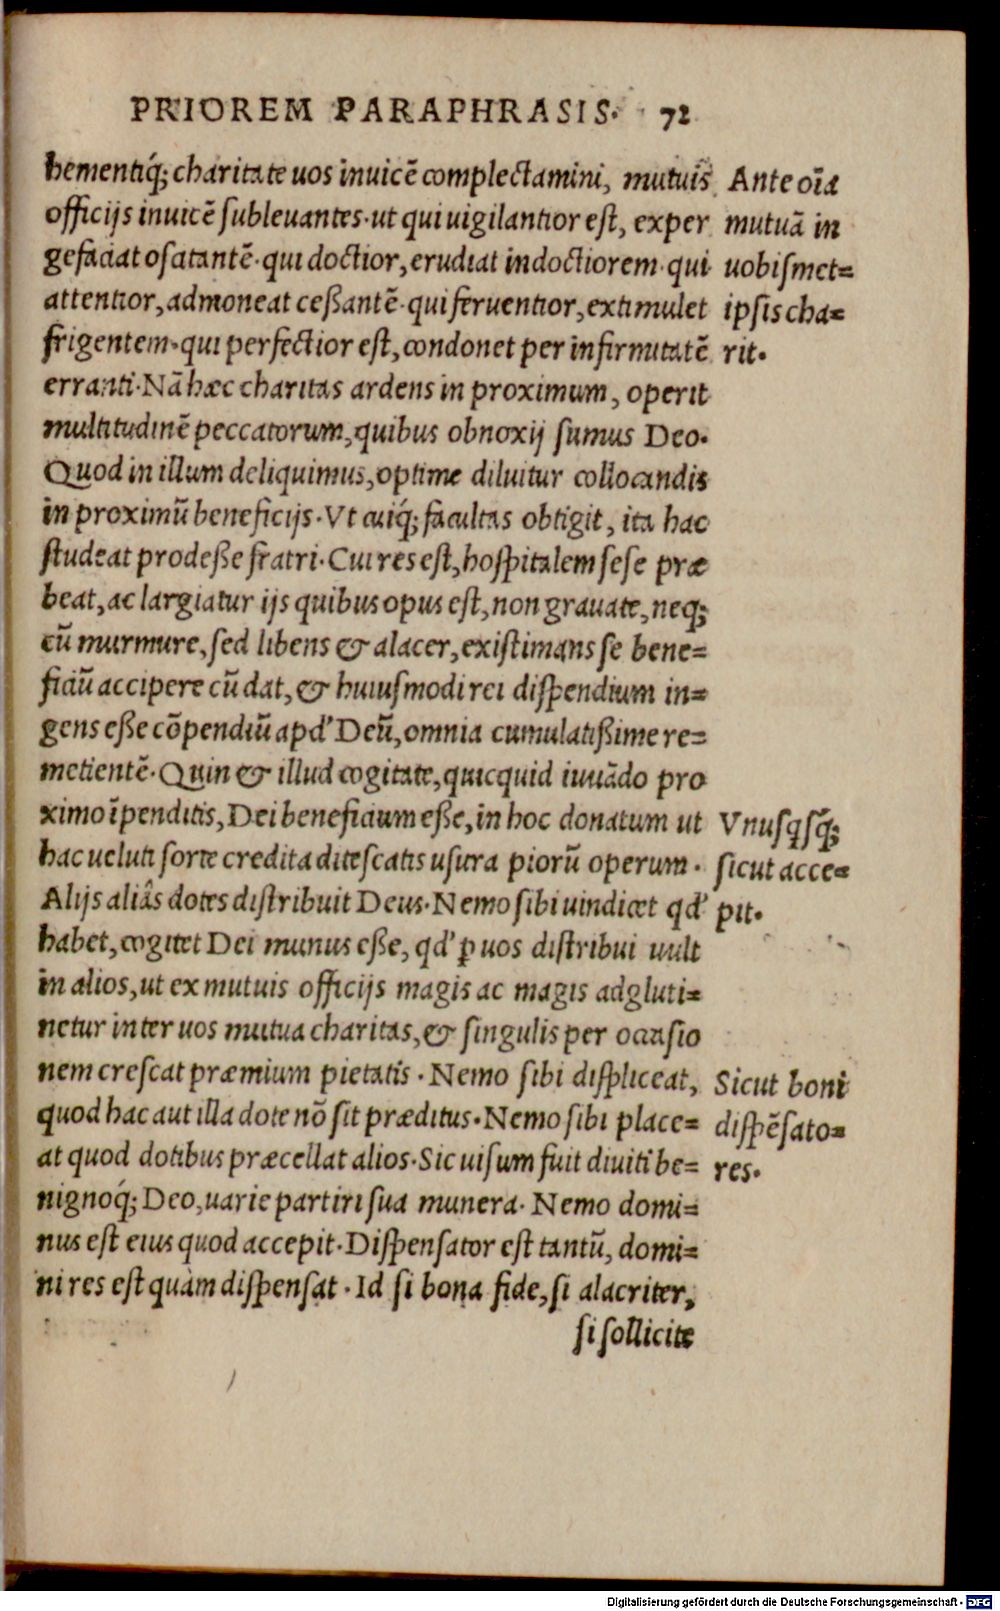 PRIOREM PARAPHRASIS. 72
hementiq́; charitate uos inuicē complectamini, mutuis
officijs inuicē subleuantes. ut qui uigilantior est, exper
gefaciat oscitantē. qui doctior, erudiat indoctiorem. qui
attentior, admoneat ceßantē. qui feruentior, extimulet
frigentem. qui perfectior est, condonet per infirmitatē
erranti. Nā hæc charitas ardens in proximum, operit
multitudinē peccatorum, quibus obnoxij sumus Deo.
Quod in illum deliquimus, optime diluitur collocandis
in proximū beneficijs. Vt cuiq́; facultas obtigit, ita hac
studeat prodeße fratri. Cui res est, hospitalem sese præ
beat, ac largiatur ijs quibus opus est, non grauate, neq;
cū murmure, sed libens & alacer, existimans se bene=
ficiū accipere cū dat, & huiusmodi rei dispendium in=
gens eße cōpendiū apd' Deū, omnia cumulatißime re=
metientē. Quin & illud cogitate, quicquid iuuādo pro
ximo īpenditis, Dei beneficium eße, in hoc donatum ut
hac ueluti sorte credita ditescatis usura piorū operum.
Alijs aliâs dotes distribuit Deus. Nemo sibi uindicet qd'
habet, cogitet Dei munus eße, qd' ꝑ uos distribui uult
in alios, ut ex mutuis officijs magis ac magis adgluti=
netur inter uos mutua charitas, & singulis per occasio
nem crescat præmium pietatis. Nemo sibi displiceat,
quod hac aut illa dote nō sit præditus. Nemo sibi place=
at quod dotibus præcellat alios. Sic uisum fuit diuiti be=
nignoq́; Deo, uarie partiri sua munera. Nemo domi=
nus est eius quod accepit. Dispensator est tantū, domi=
ni res est quàm dispensat. Id si bona fide, si alacriter,
si sollicite
Ante oīa
mutuā in
uobismet=
ipsis cha=
rit.
Vnusqsq́;
sicut acce=
pit.
Sicut boni
dispēsato=
res.
Digitalisierung gefördert durch die Deutsche Forschungsgemeinschaft - DFG